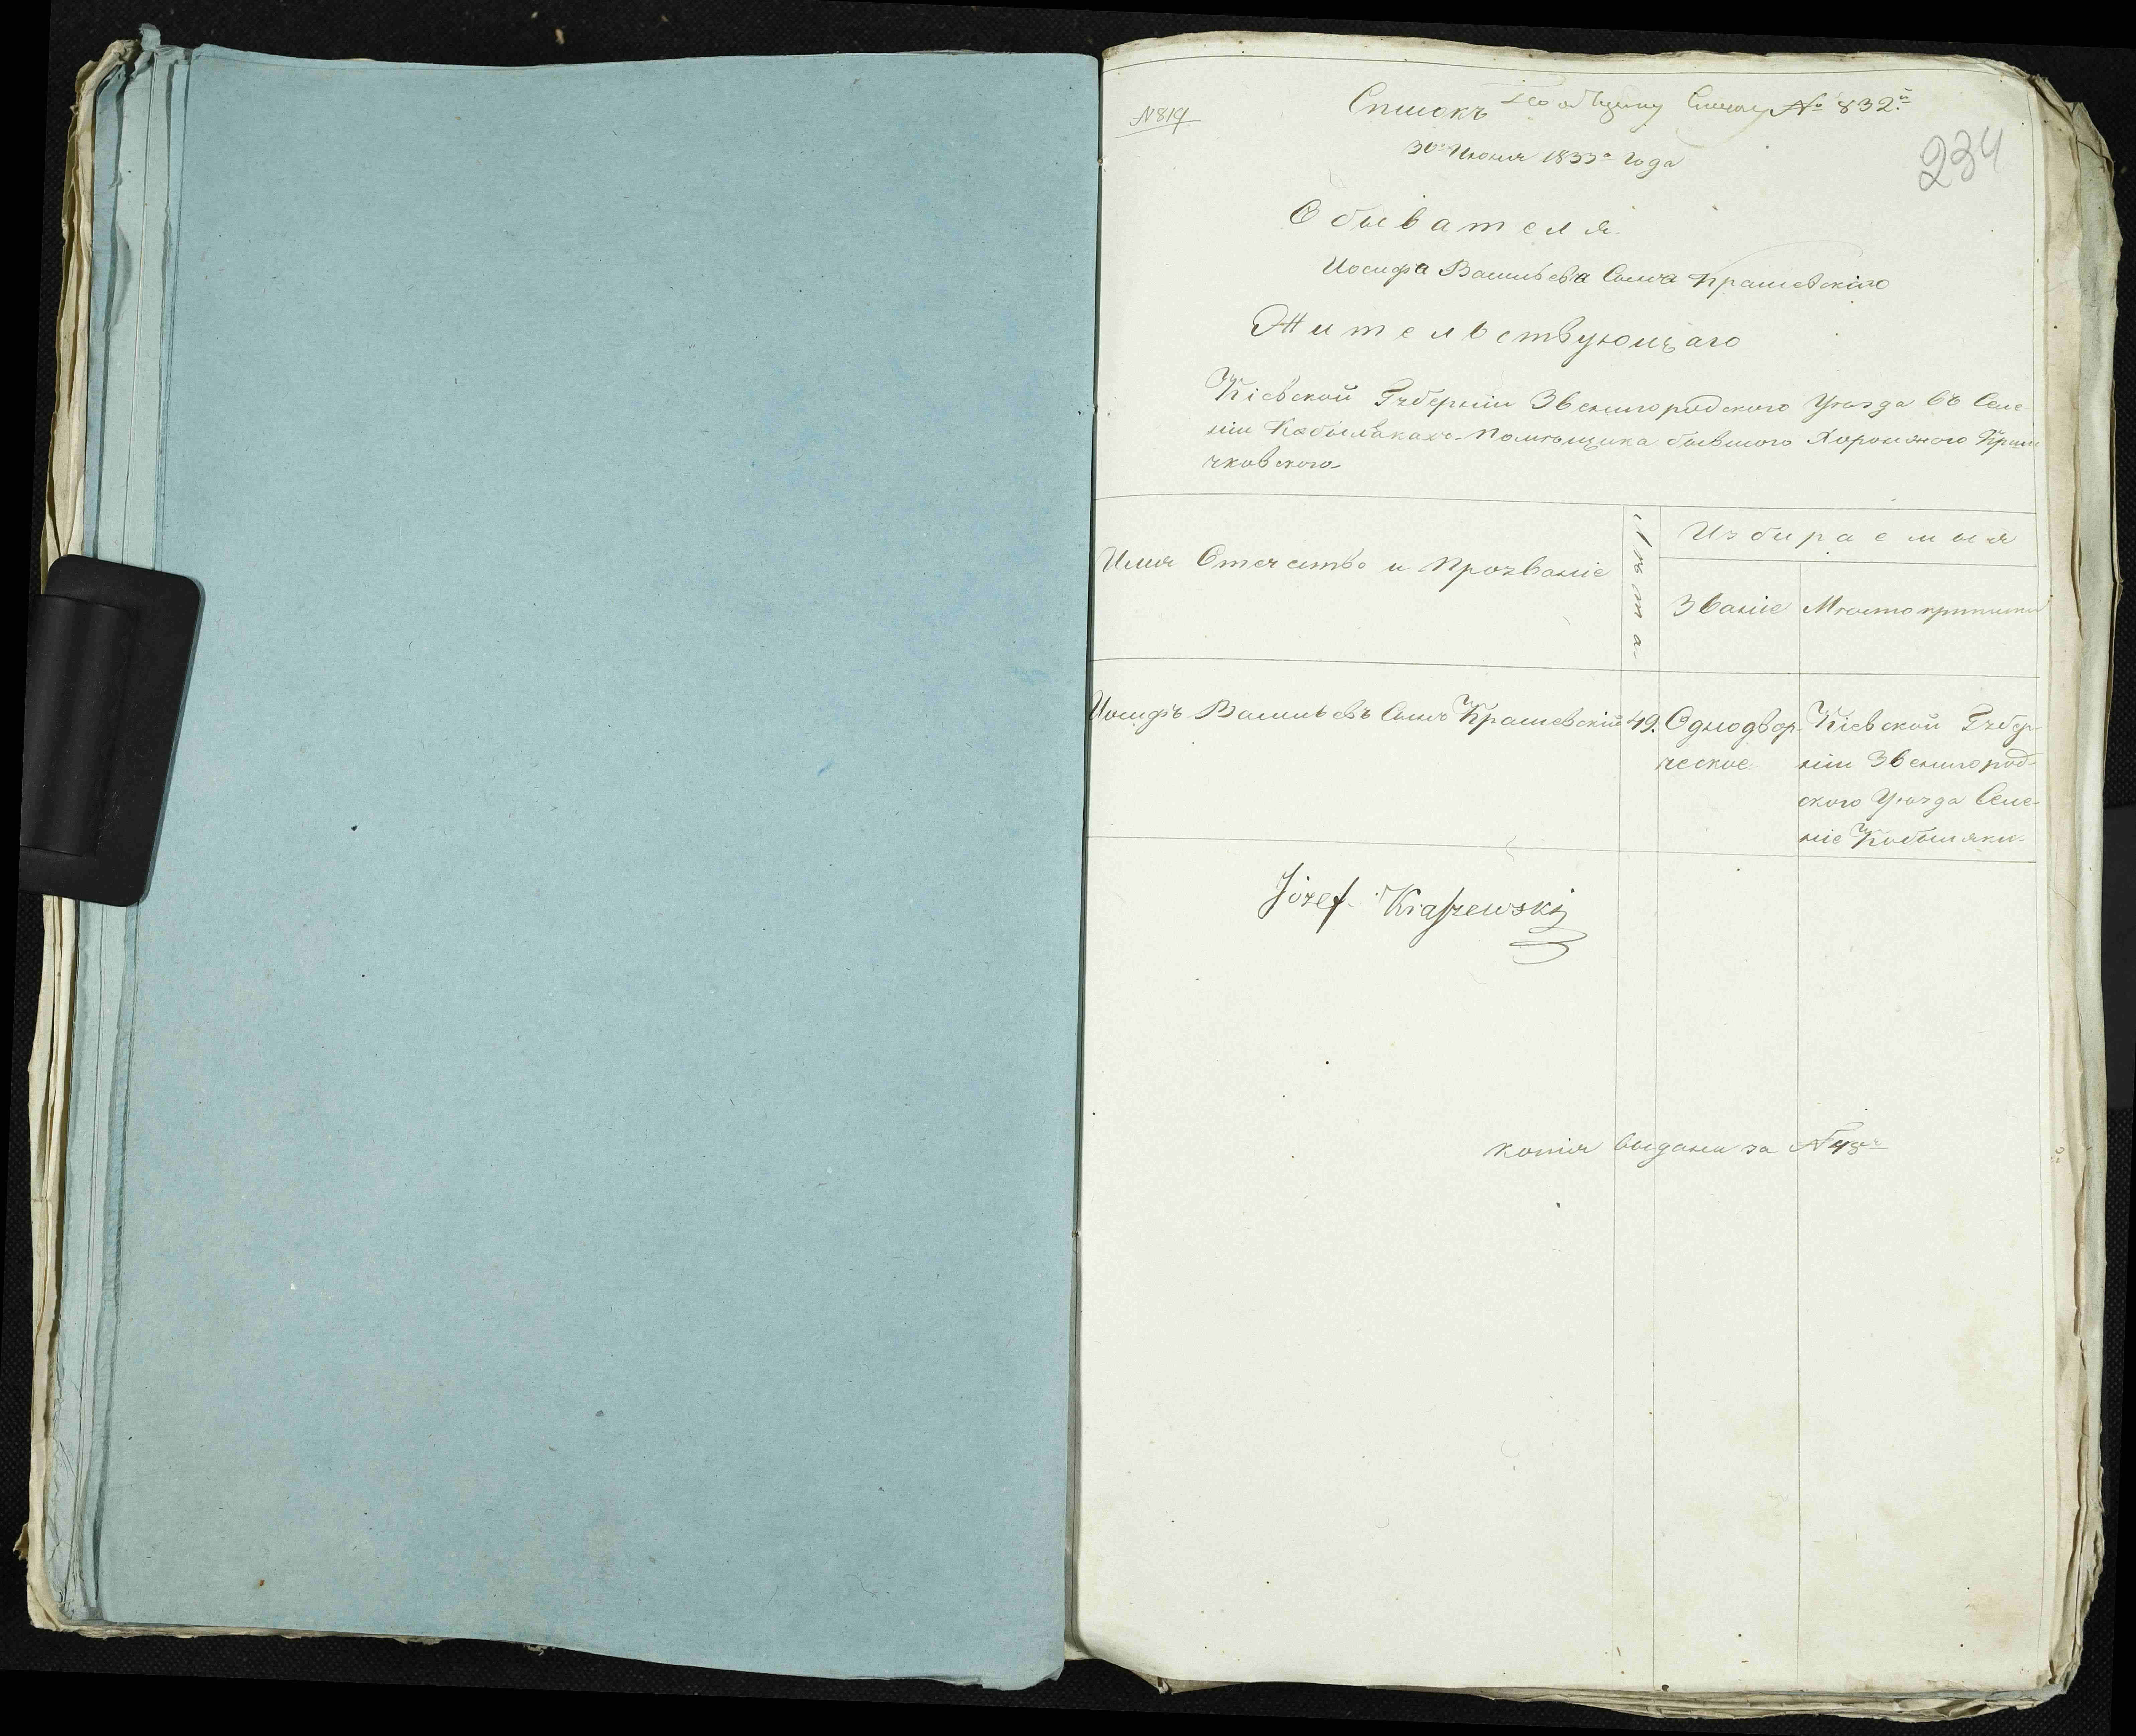 N 819
Списокъ По общему Списку № 832й
234
30го Июня 1833го Года
Обывателя
Иосифа Васильева Сына Крашевскаго
Жительствующаго
Кіевской Губерніи Звенигородского Уѣзда въ Селе-
ніи Кобылякахъ Помѣщика бывшого Хорожого
чковского
Имя Отечество и Прозваніе
Лѣта
Избираемыя
Званіе
Мѣсто приписки
Иосифъ Васильевъ Сынъ Крашевскій
49.
Однодвор-
ческое
Кіевской Губер-
ніи Звенигород-
ского Уѣзда Селе-
ніе Кобыляки
Józef Kraszewski
копія выдана за N 48м